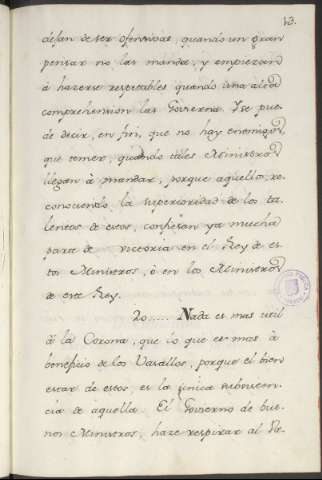 13.
dejan de ser ofensivas, quando un gran
pensar no las manda, y empiezan
à hazerse respetables quando una alta
comprehension las Govierna. Y se pue-
de decir, en fin, que no hay enemigos
que temer, quando tales Ministros
llegan à mandar, porque aquellos, re-
conociendo la superioridad de los ta-
lentos de estos, confiesan ya mucha
parte de victoria en el Rey de es-
tos Ministros, ò en los Ministros
de este Rey.
20...... Nada es mas util
à la Corona, que lo que es mas à
beneficio de los Vasallos, porque el bien
estar de estos, es la única subsisten-
cia de aquella. El Govierno de bue-
nos Ministros, haze respirar al Re-